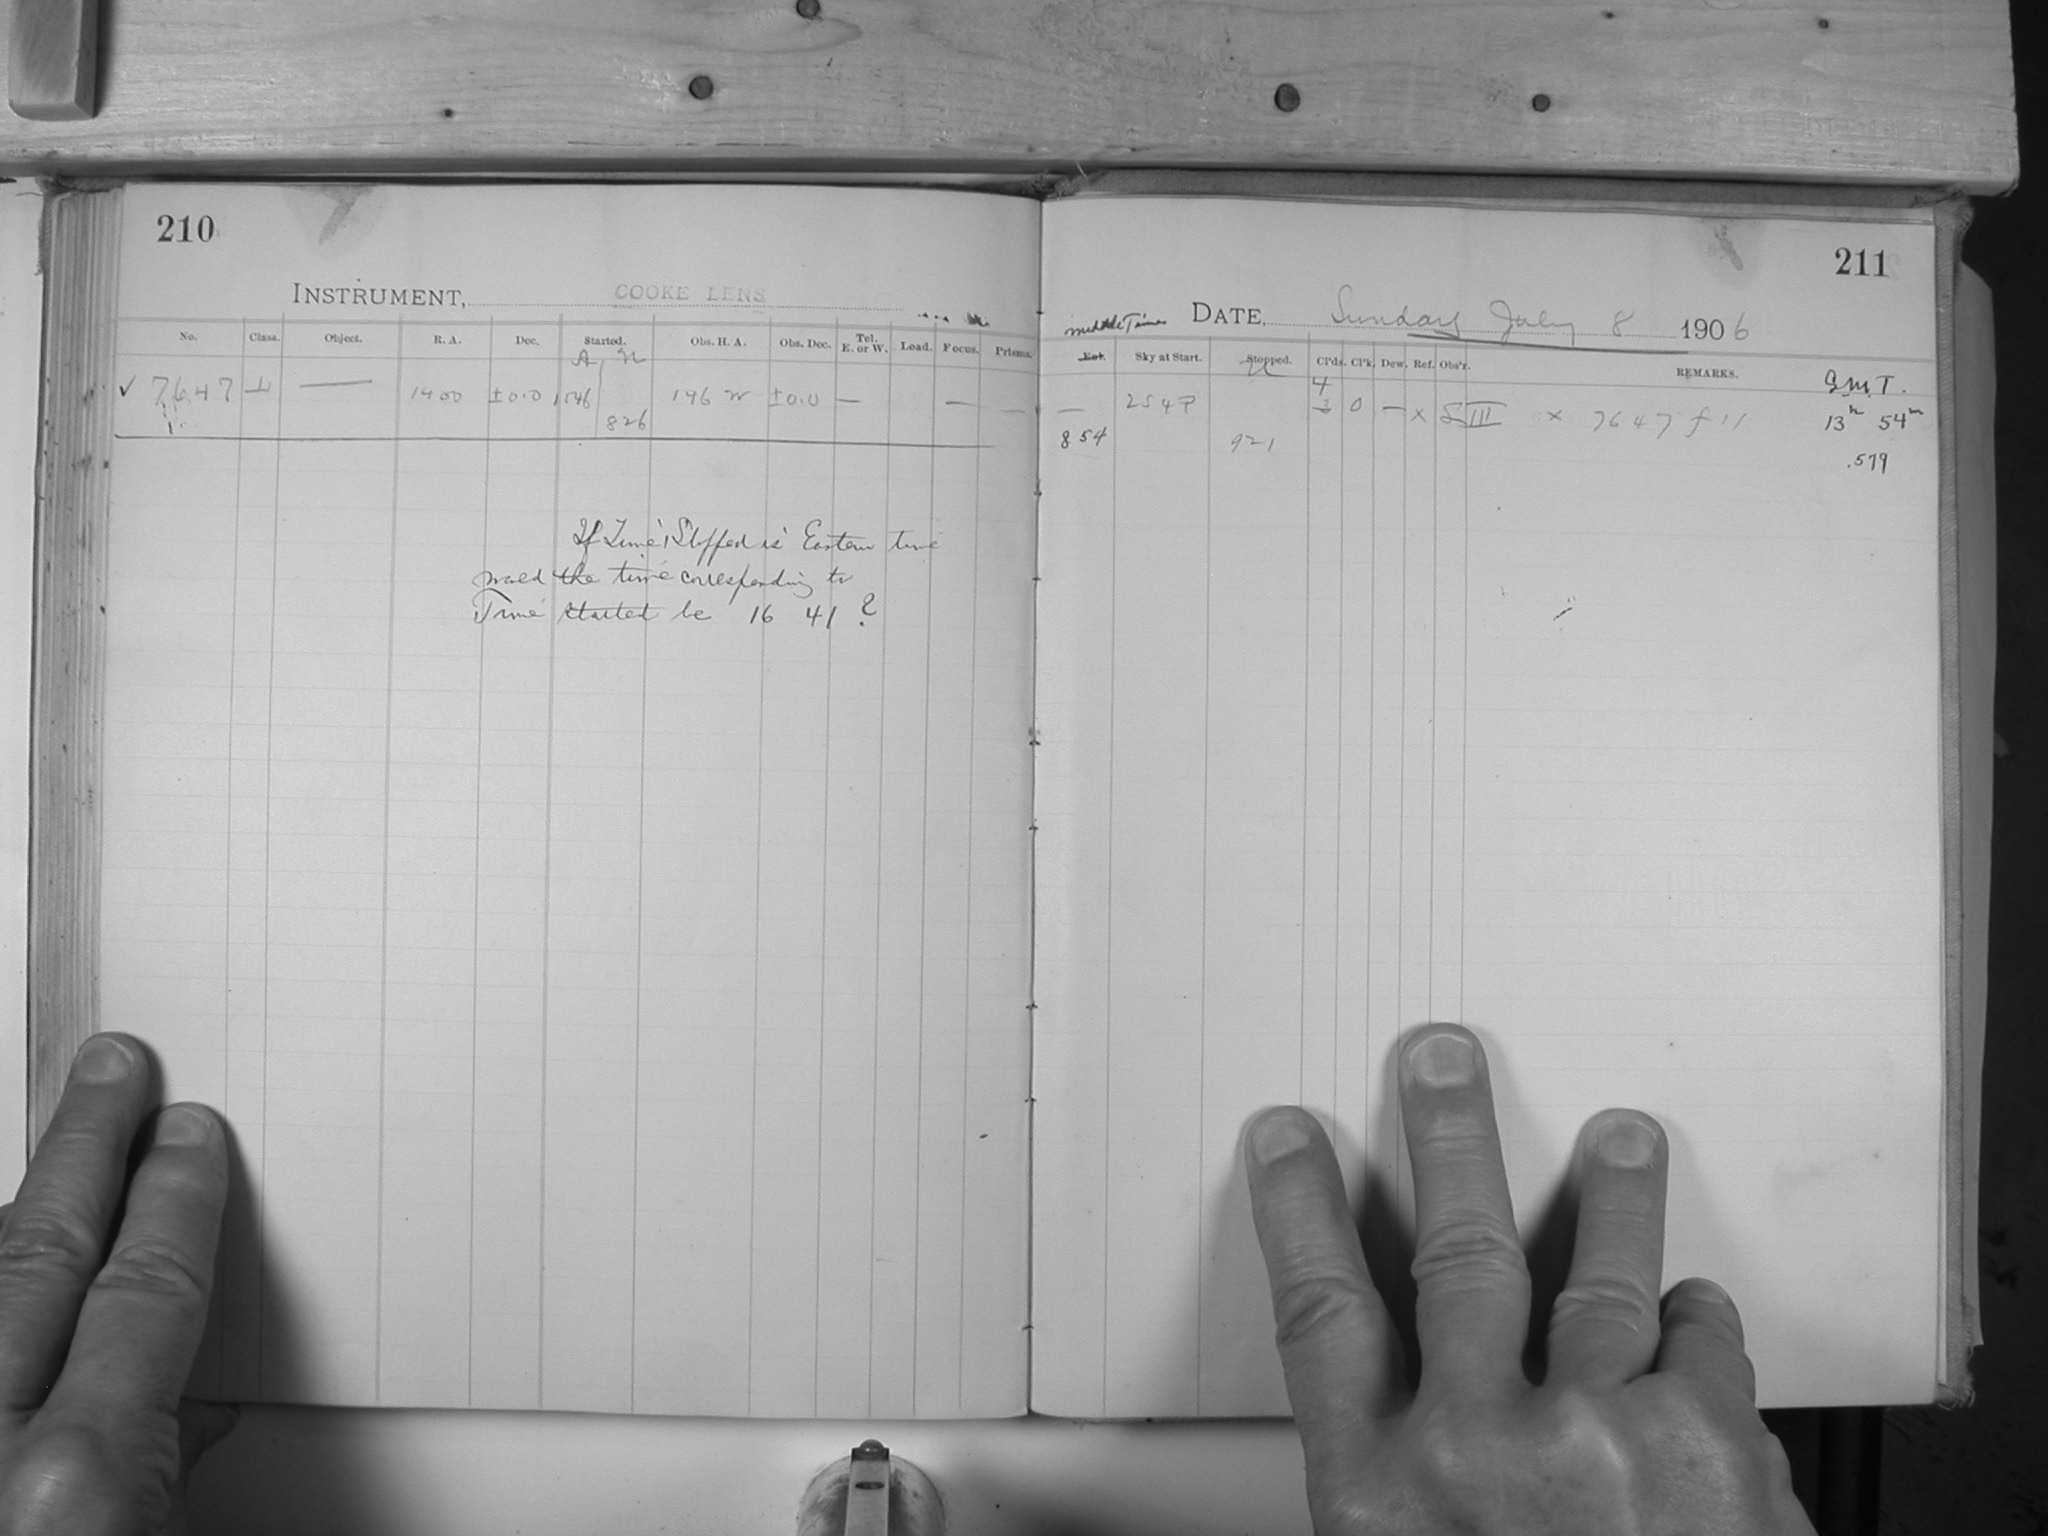 210
INSTRUMENT, COOKE LENS
No. Class. Object. R. A. Dec. Started. Obs. H. A. Obs. Dec. Tel. E. or W. Load. Focus. Prisms.
✓ 7647 — 1400 ±0.0 1546 146 W ±0.0 — — —
826
If Time Stopped is Eastern time
would the time corresponding to
Time started be 16 41 ?
211
DATE, Sunday July 8 1906
Middle Time
Est. Sky at Start. Stopped. Cl'ds. Cl'k. Dew. Ref. Obs'r. REMARKS. G.M.T.
4
— 254P 3 0 — x III x 7647 f 11 13h 54m
854 921 .579